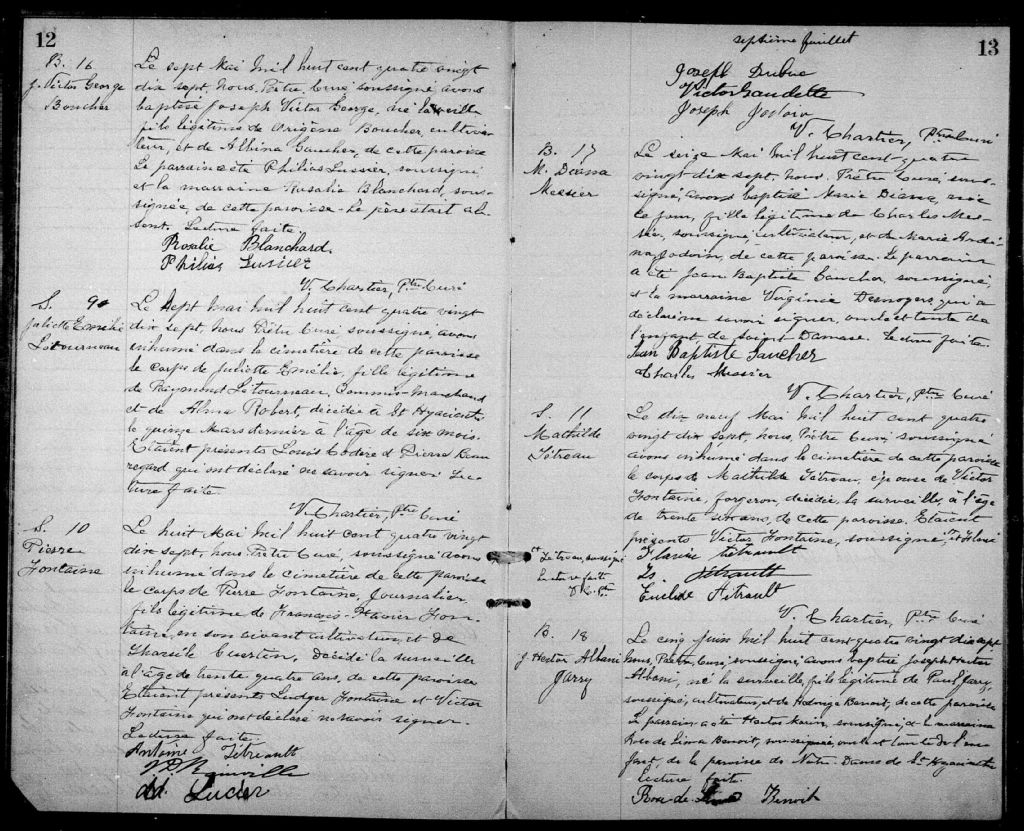 12
B. 16
J. Victor George
Boucher
Le sept Mai Mil huit cent quatre vingt
dix sept, Nous, Prêtre, Curé soussigné avons
baptisé Joseph Victor George, né la veille
fils légitime de Origène Boucher, cultiva-
teur, et de Albina Gaucher, de cette paroisse
Le parrain a été Philias Lussier, soussigné,
et la marraine Rosalie Blanchard, sous-
signée, de cette paroisse - Le père était ab-
sent. Lecture faite
Rosalie Blanchard
Philias Lussier
V. Chartier, Ptre Curé
S. 9
Juliette Emélie
Létourneau
Le Sept Mai Mil huit cent quatre vingt
dix sept, Nous Prêtre Curé soussigné, avons
inhumé dans le cimetière de cette paroisse
le corps de Juliette Emélie, fille légitime
de Raymond Létourneau, Commis-Marchand
et de Alma Robert, décédée à St Hyacinthe
le quinze Mars dernier à l'âge de six mois.
Etaient présents Louis Codere et Pierre Beau
regard qui ont déclaré ne savoir signer. Lec-
ture faite.
V. Chartier, Ptre Curé
S. 10
Pierre
Fontaine
Le huit Mai Mil huit cent quatre vingt
dix sept, nous Prêtre Curé, soussigné avons
inhumé dans le cimetière de cette paroisse
le corps de Pierre Fontaine, Journalier,
fils légitime de Francois-Xavier Fon-
taine, en son vivant cultivateur, et de
Tharsile décédé la surveille
à l'âge de trente quatre ans, de cette paroisse
Etaient présents Ludger Fontaine et Victor
Fontaine qui ont déclaré ne savoir signer.
Lecture faite.
Antoine Tétreault
Rainville
Lucier
septième feuillet
13
Joseph Dubuc
Victor Gaudette
Joseph Jodoin
V. Chartier, Ptre Curé
B. 17
M. Diana
Messier
Le seize Mai Mil huit cent quatre
vingt dix sept, nous, Prêtre Curé, sous-
signé, avons baptisé Marie Diana, née
ce jour, fille légitime de Charles Mes-
sier, soussigné, cultivateur, et de Marie
Jodoin, de cette paroisse. Le parrain
a été Jean Baptiste Gaucher, soussigné,
et la marraine Virginie Desnoyers, qui a
déclaré ne savoir signer, oncle et tante de
l'enfant, de Saint Damase. Lecture faite.
Jean Baptiste Gaucher
Charles Messier
V. Chartier, Ptre Curé
S. 11
Mathilde
Tétreau
Le dix neuf Mai Mil huit cent quatre
vingt dix sept, nous, Prêtre Curé soussigné
avons inhumé dans le cimetière de cette paroisse
le corps de Mathilde Tétreau, épouse de Victor
Fontaine, forgeron, décédée la surveille, à l'âge
de trente six ans, de cette paroisse. Etaient
présents Victor Fontaine, soussigné,
Tétreau, soussigné
Lecture faite
V.C. Ptre
Tétrault
Ls. Tétrault
Euclide Tétrault
V. Chartier, Ptre Curé
B. 18
J. Hector Albani
Jarry
Le cinq Juin Mil huit cent quatre vingt dix sept
Nous, Prêtre, Curé, soussigné avons baptisé Joseph Hector
Albani, né la surveille, fils légitime de Paul Jarry,
soussigné, cultivateur, et de Benoit, de cette paroisse
Le parrain a été Hector soussigné, et la marraine
Rose de Lima Benoit, soussignée, oncle et tante de l'en-
fant, de la paroisse de Notre Dame de St Hyacinthe
Lecture faite.
Rose de Benoit